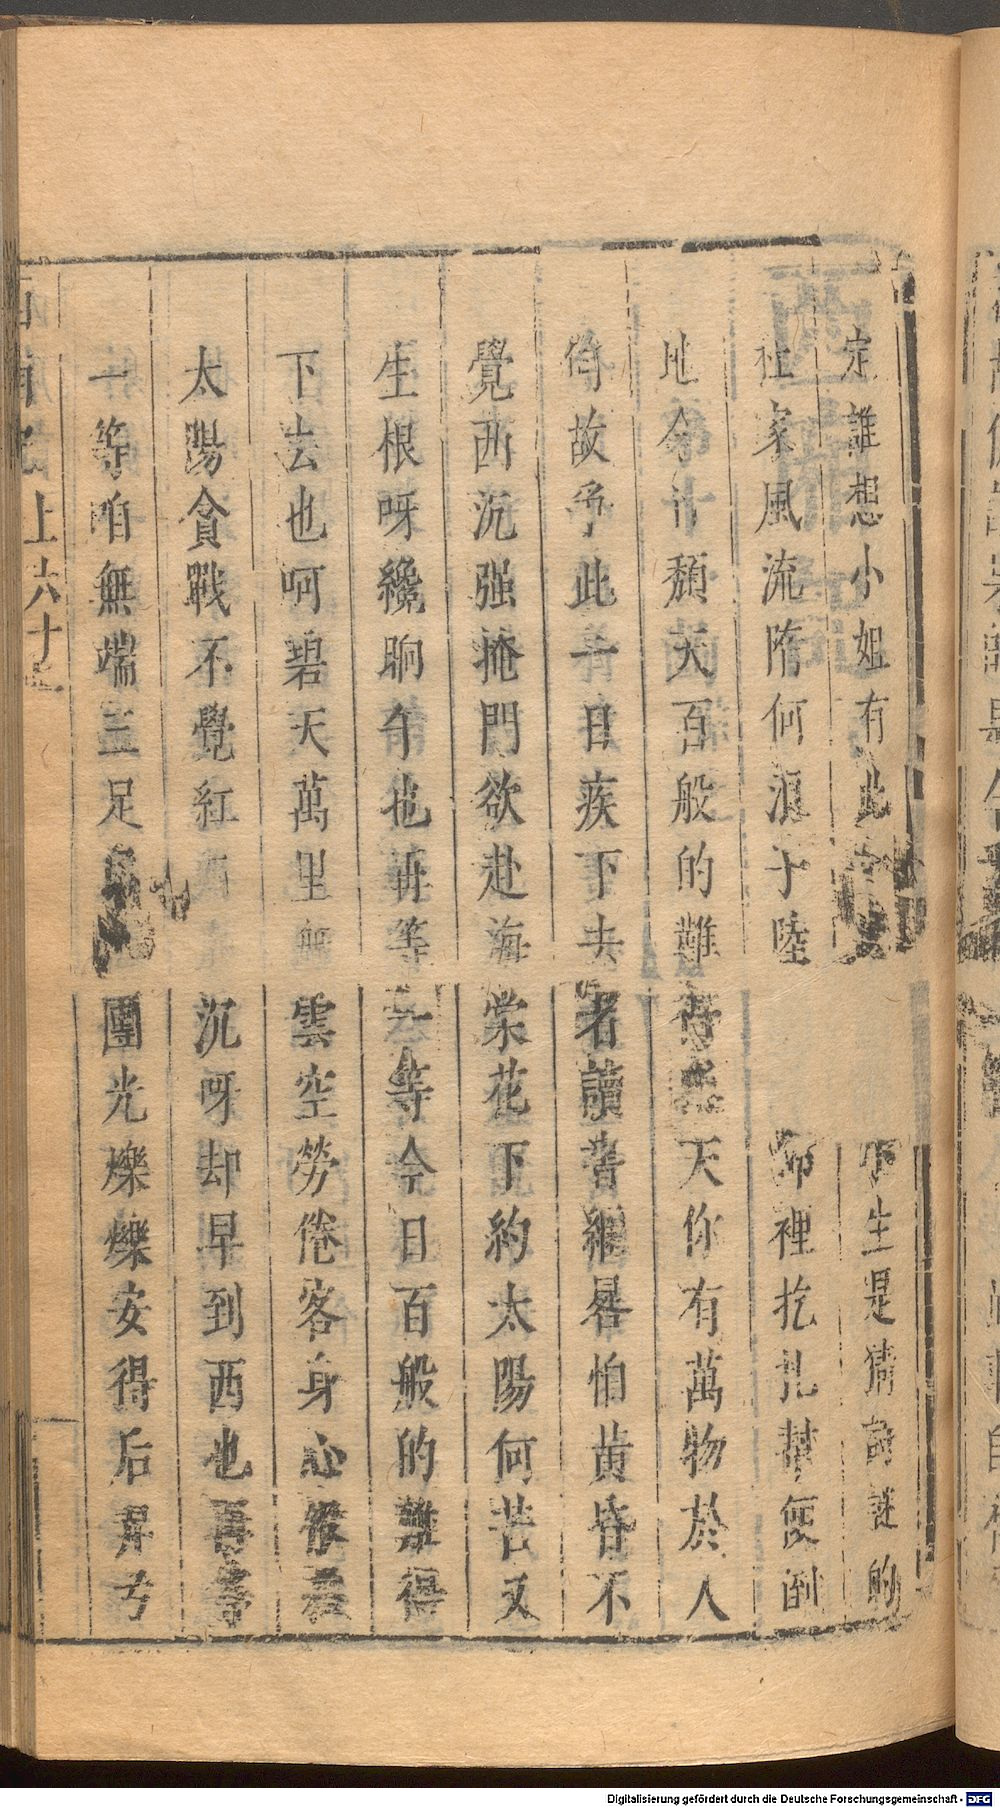 定誰想小姐有此 小生是猜詩謎的
社家風流隋何浪子陸 那裡扢扎幫便倒
地今 頹天百般的難得 天你有萬物於人
何故 此一日疾下去 者讀書繼晷怕黃昏不
覺西沉强掩門欲赴海棠花下約太陽何苦又
生根呀纔晌午也再等一等今日百般的難得
下去也呵碧天萬里無雲空勞倦客身心
太陽貪戰不覺紅 沉呀却早到西也再等
一等咱無端三足 團光爍爍安得后羿弓
上六十
Digitalisierung gefördert durch die Deutsche Forschungsgemeinschaft
DFG